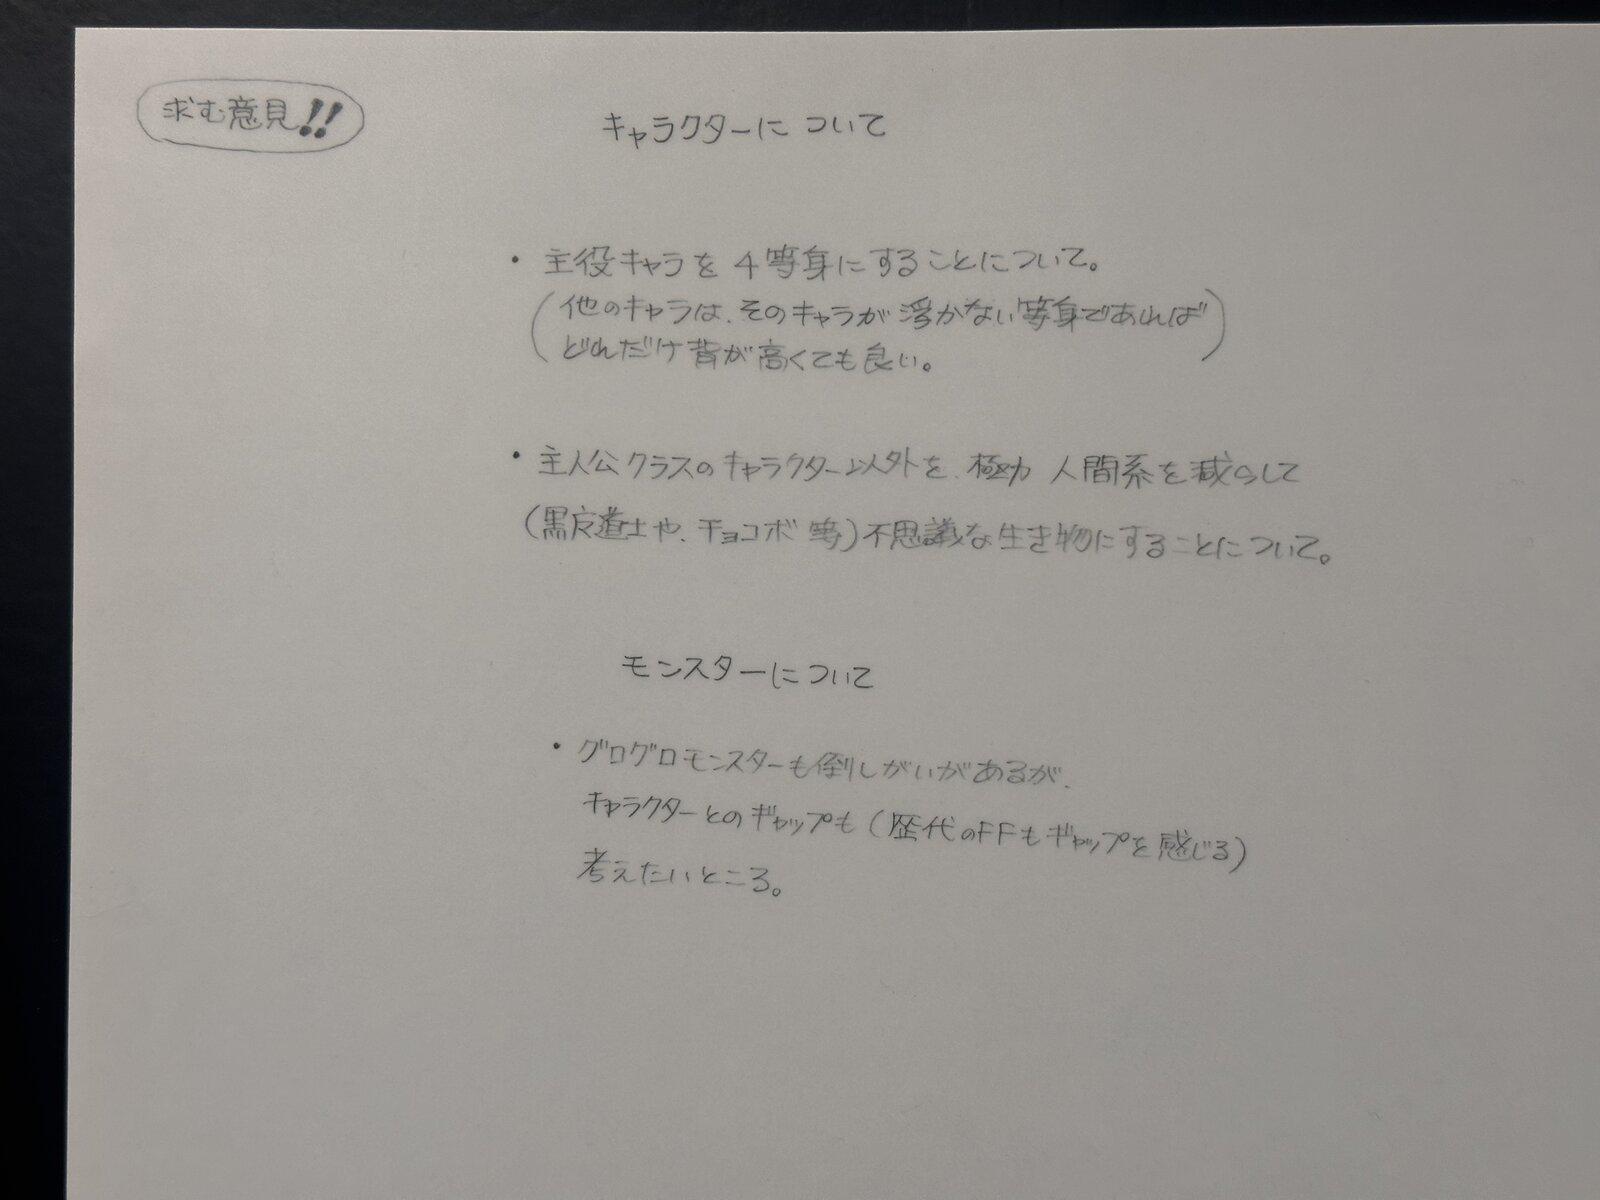 求む意見!!
キャラクターについて
・主役キャラを4等身にすることについて。
(他のキャラは、そのキャラが浮かない等身であれば
どれだけ背が高くても良い。)
・主人公クラスのキャラクター以外を、極力 人間系を減らして
(黒魔道士や、チョコボ等)不思議な生き物にすることについて。
モンスターについて
・グログロモンスターも倒しがいがあるが、
キャラクターとのギャップも(歴代のFFもギャップを感じる)
考えたいところ。